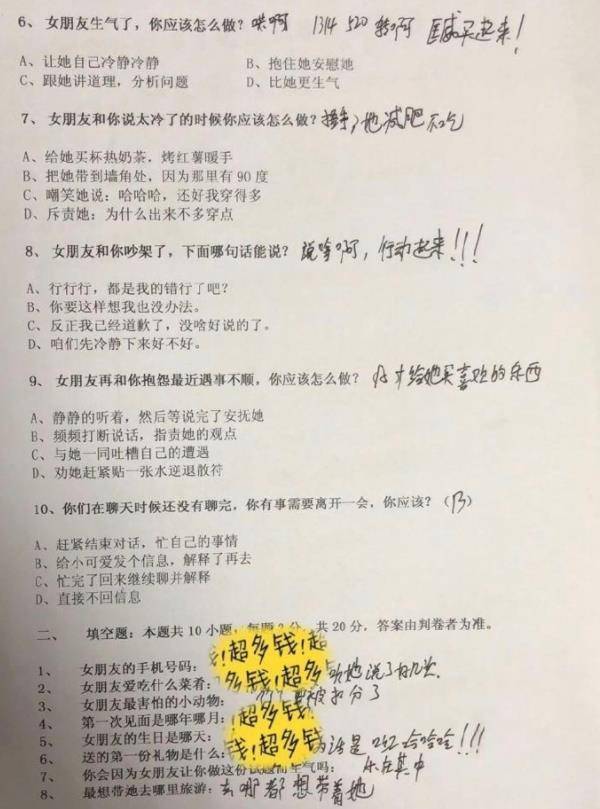 6、女朋友生气了，你应该怎么做？哄啊 1314 520 转啊 买起来！
A、让她自己冷静冷静 B、抱住她安慰她
C、跟她讲道理，分析问题 D、比她更生气
7、女朋友和你说太冷了的时候你应该怎么做？她减肥不吃
A、给她买杯热奶茶，烤红薯暖手
B、把她带到墙角处，因为那里有90度
C、嘲笑她说：哈哈哈，还好我穿得多
D、斥责她：为什么出来不多穿点
8、女朋友和你吵架了，下面哪句话能说？说啥啊，行动起来！！！
A、行行行，都是我的错行了吧？
B、你要这样想我也没办法。
C、反正我已经道歉了，没啥好说的了。
D、咱们先冷静下来好不好。
9、女朋友再和你抱怨最近遇事不顺，你应该怎么做？给她买喜欢的东西
A、静静的听着，然后等说完了安抚她
B、频频打断说话，指责她的观点
C、与她一同吐槽自己的遭遇
D、劝她赶紧贴一张水逆退散符
10、你们在聊天时候还没有聊完，你有事需要离开一会，你应该？（B）
A、赶紧结束对话，忙自己的事情
B、给小可爱发个信息，解释了再去
C、忙完了回来继续聊并解释
D、直接不回信息
二、填空题：本题共10小题，每题2分，共20分，答案由判卷者为准。
1、女朋友的手机号码：钱！超多钱！超
2、女朋友爱吃什么菜肴：多钱！超多钱 听她说了好几次
3、女朋友最害怕的小动物：被扣分了
4、第一次见面是哪年哪月：超多钱！
5、女朋友的生日是哪天：钱！超多钱
6、送的第一份礼物是什么：是 哈哈哈！！！
7、你会因为女朋友让你做这份试题而生气吗：乐在其中
8、最想带她去哪里旅游：去哪都想带着她